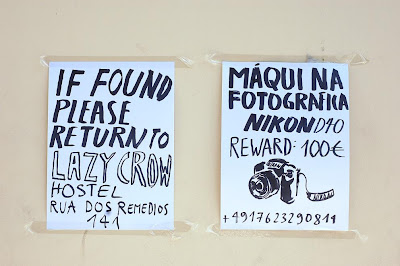 IF FOUND
PLEASE
RETURN TO
LAZY CROW
HOSTEL
RUA DOS REMEDIOS
141
MÁQUINA
FOTOGRAFICA
NIKON D40
REWARD: 100€
+4917623290811